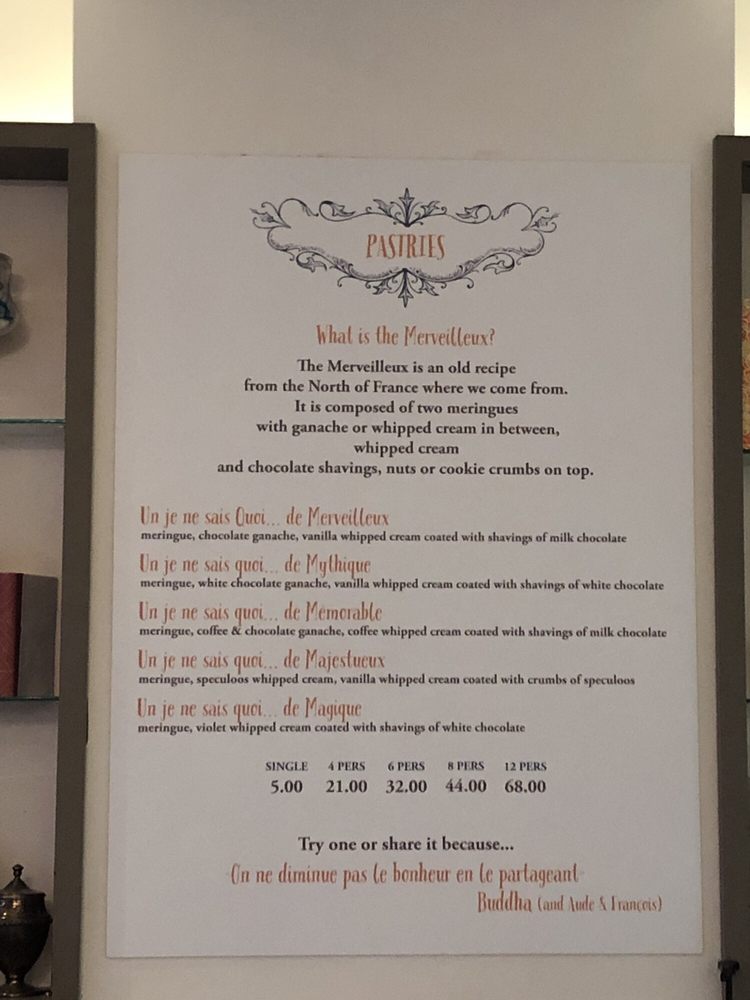 PASTRIES
What is the Merveilleux?
The Merveilleux is an old recipe
from the North of France where we come from.
It is composed of two meringues
with ganache or whipped cream in between,
whipped cream
and chocolate shavings, nuts or cookie crumbs on top.
Un je ne sais Quoi... de Merveilleux
meringue, chocolate ganache, vanilla whipped cream coated with shavings of milk chocolate
Un je ne sais quoi... de Mythique
meringue, white chocolate ganache, vanilla whipped cream coated with shavings of white chocolate
Un je ne sais quoi... de Memorable
meringue, coffee & chocolate ganache, coffee whipped cream coated with shavings of milk chocolate
Un je ne sais quoi... de Majestueux
meringue, speculoos whipped cream, vanilla whipped cream coated with crumbs of speculoos
Un je ne sais quoi... de Magique
meringue, violet whipped cream coated with shavings of white chocolate
SINGLE 4 PERS 6 PERS 8 PERS 12 PERS
5.00 21.00 32.00 44.00 68.00
Try one or share it because...
On ne diminue pas le bonheur en le partageant
Buddha (and Aude & François)